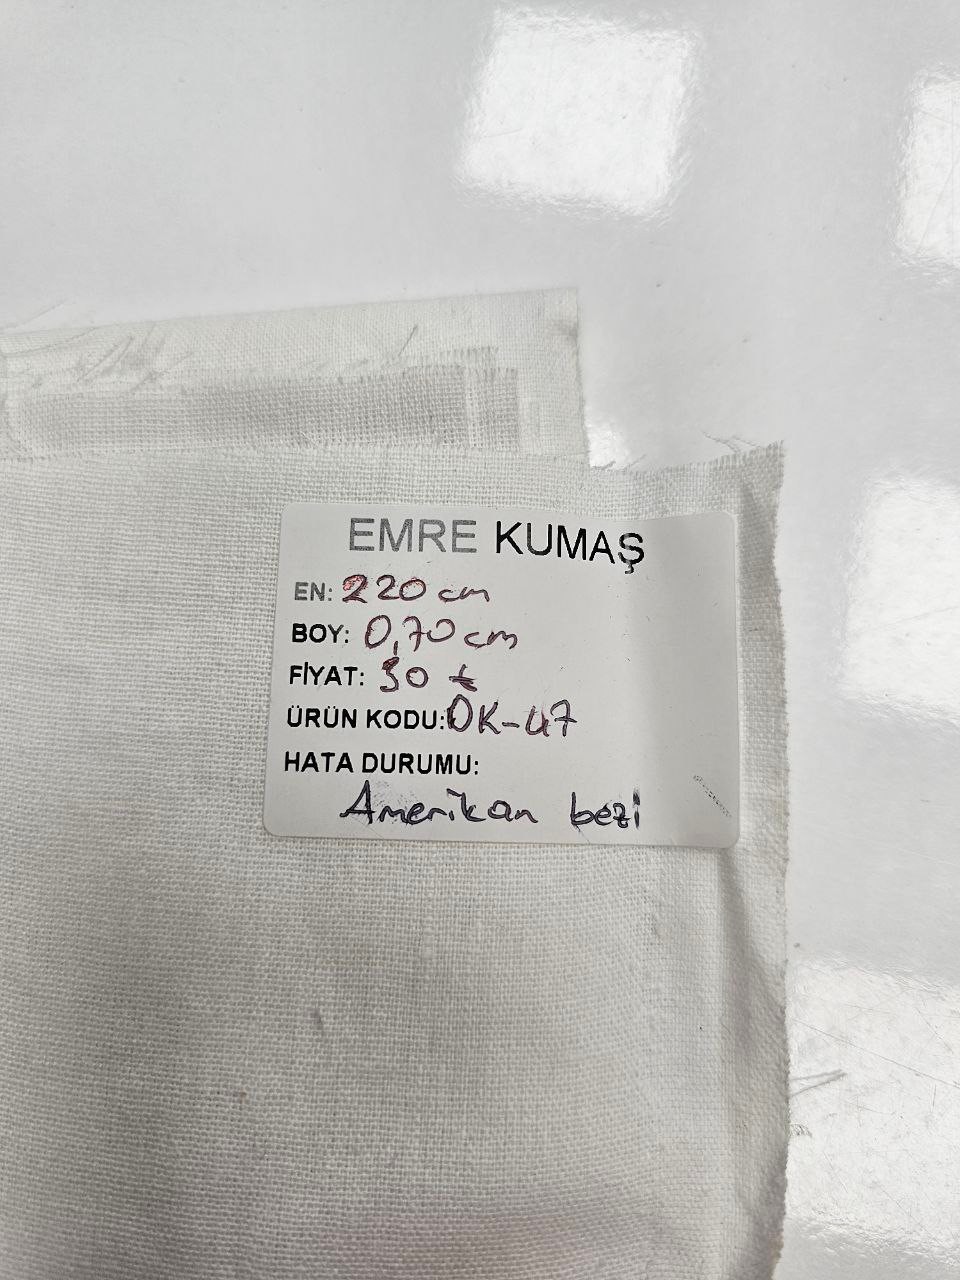 EMRE KUMAŞ
EN: 220 cm
BOY: 0,70 cm
FİYAT: 30 ₺
ÜRÜN KODU: OK-47
HATA DURUMU:
Amerikan bezi